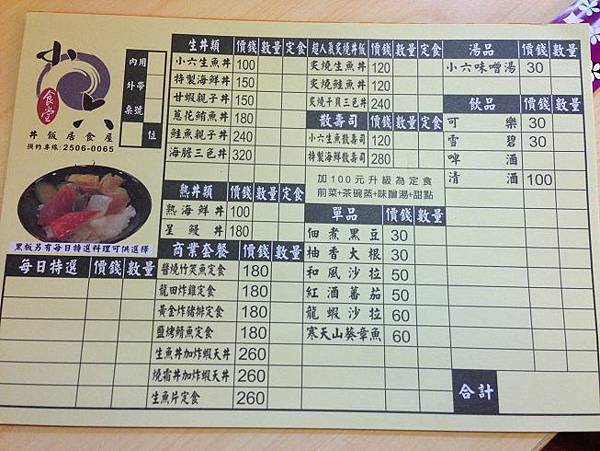 小六
食堂
丼飯居食屋
預約專線:2506-0065
內用
外帶
桌號
位
黑板另有每日特選料理可供選擇
每日特選 價錢 數量
生丼類 價錢 數量 定食
小六生魚丼 100
特製海鮮丼 150
甘蝦親子丼 150
蔥花鮪魚丼 180
鮭魚親子丼 240
海膽三色丼 320
熟丼類 價錢 數量 定食
熟海鮮丼 100
星鰻丼 180
商業套餐 價錢 數量
醬燒竹筴魚定食 180
龍田炸雞定食 180
黃金炸豬排定食 180
鹽烤鯖魚定食 180
生魚丼加炸蝦天丼 260
燒霜丼加炸蝦天丼 260
生魚片定食 260
超人氣炙燒丼飯 價錢 數量 定食
炙燒生魚丼 120
炙燒鮭魚丼 120
炙燒干貝三色丼 240
散壽司 價錢 數量 定食
小六生魚散壽司 120
特製海鮮散壽司 280
加100元升級為定食
前菜+茶碗蒸+味噌湯+甜點
單品 價錢 數量
佃煮黑豆 30
柚香大根 30
和風沙拉 50
紅酒蕃茄 50
龍蝦沙拉 60
寒天山葵章魚 60
湯品 價錢 數量
小六味噌湯 30
飲品 價錢 數量
可樂 30
雪碧 30
啤酒
清酒 100
合計